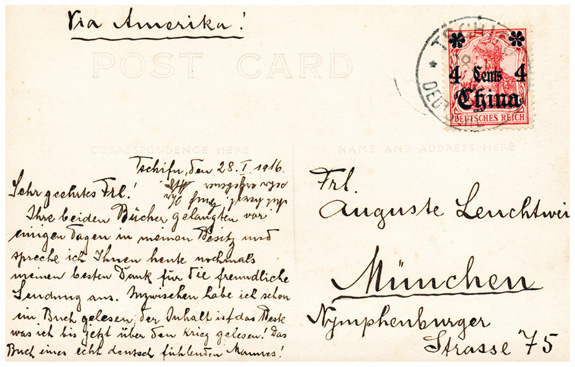 Via Amerika!
POST CARD
TSCHIFU
DEUTSCHE
4 Cents 4
China
DEUTSCHES REICH
CORRESPONDENCE HERE
NAME AND ADDRESS HERE
Tschifu, den 28. I. 1916.
Sehr geehrtes Frl.!
Ihre beiden Bücher gelangten vor
einigen Tagen in meinen Besitz und
spreche ich Ihnen heute nochmals
meinen besten Dank für die freundliche
Sendung aus. Inzwischen habe ich schon
im Buch gelesen, der Inhalt ist das Beste
was ich bis jetzt über den Krieg gelesen! Das
Buch eines echt deutsch fühlenden Mannes!
Frl.
Auguste Leuchtwei
München
Nymphenburger
Strasse 75